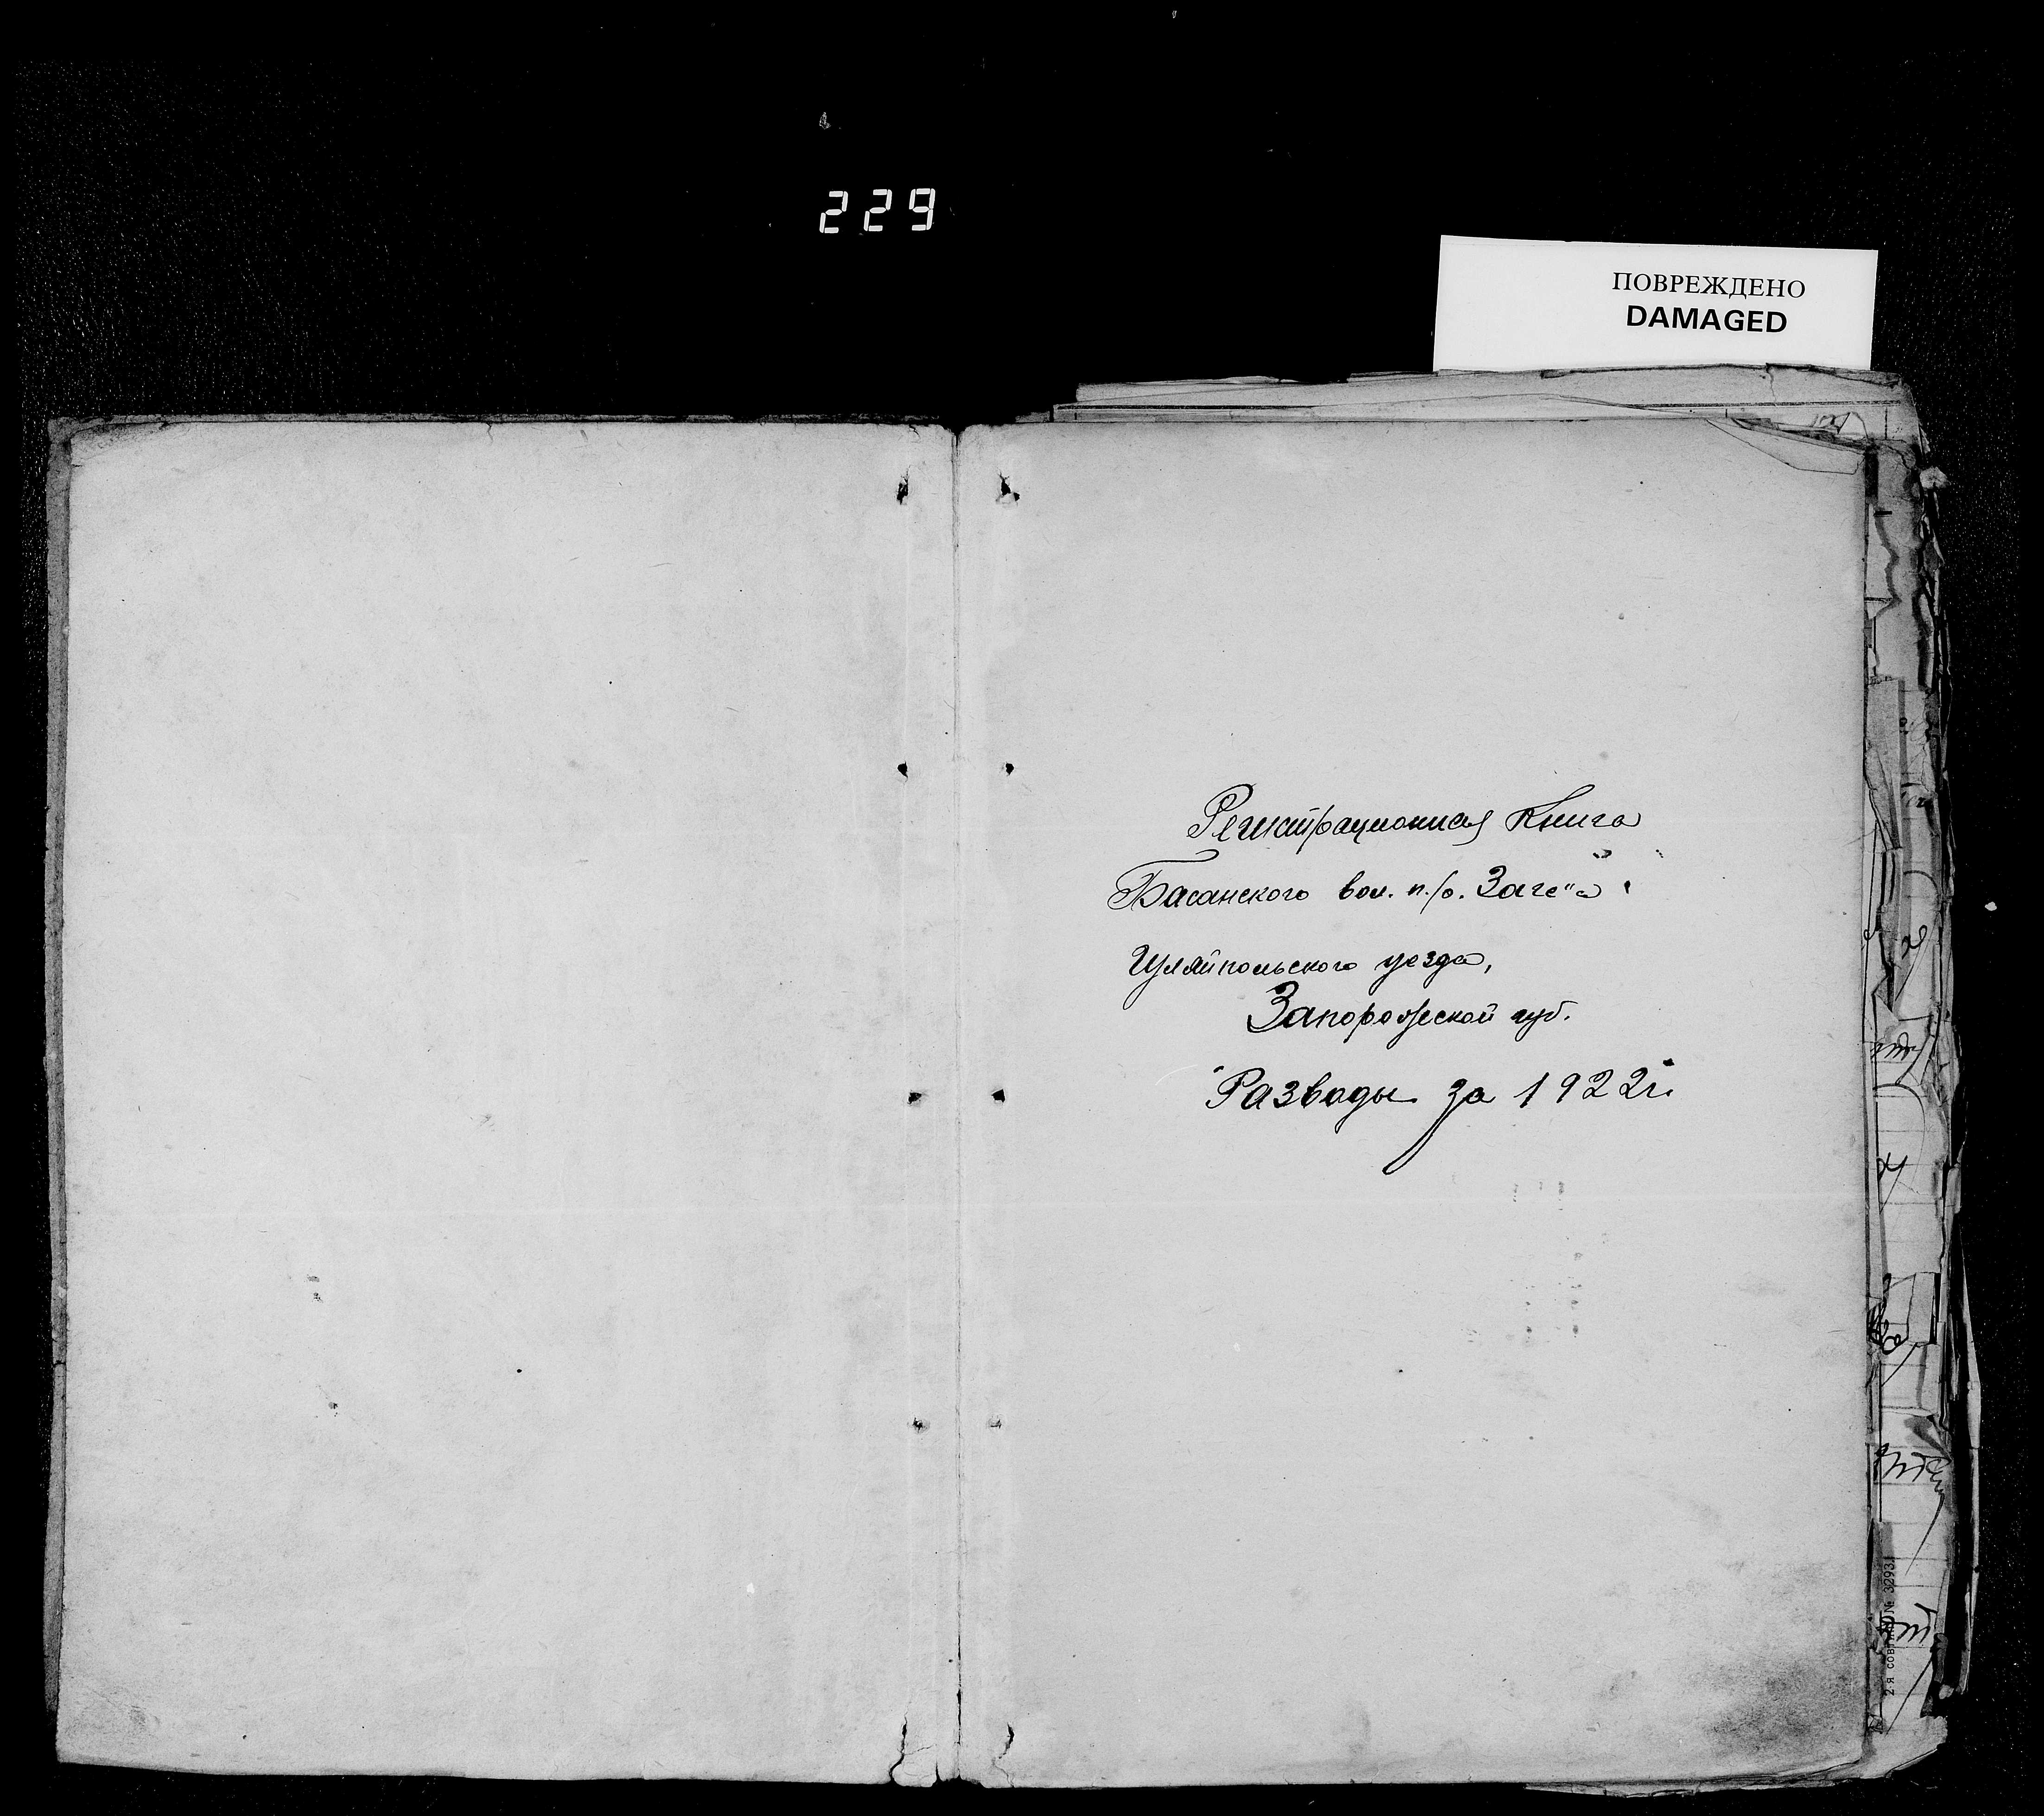 229
ПОВРЕЖДЕНО
DAMAGED
Регистрационная Книга
Басанского вол. п/о. Загс"а
Гуляйпольского уезда,
Запорожской губ.
Разводы за 1922г.
2-я сов. № 32931